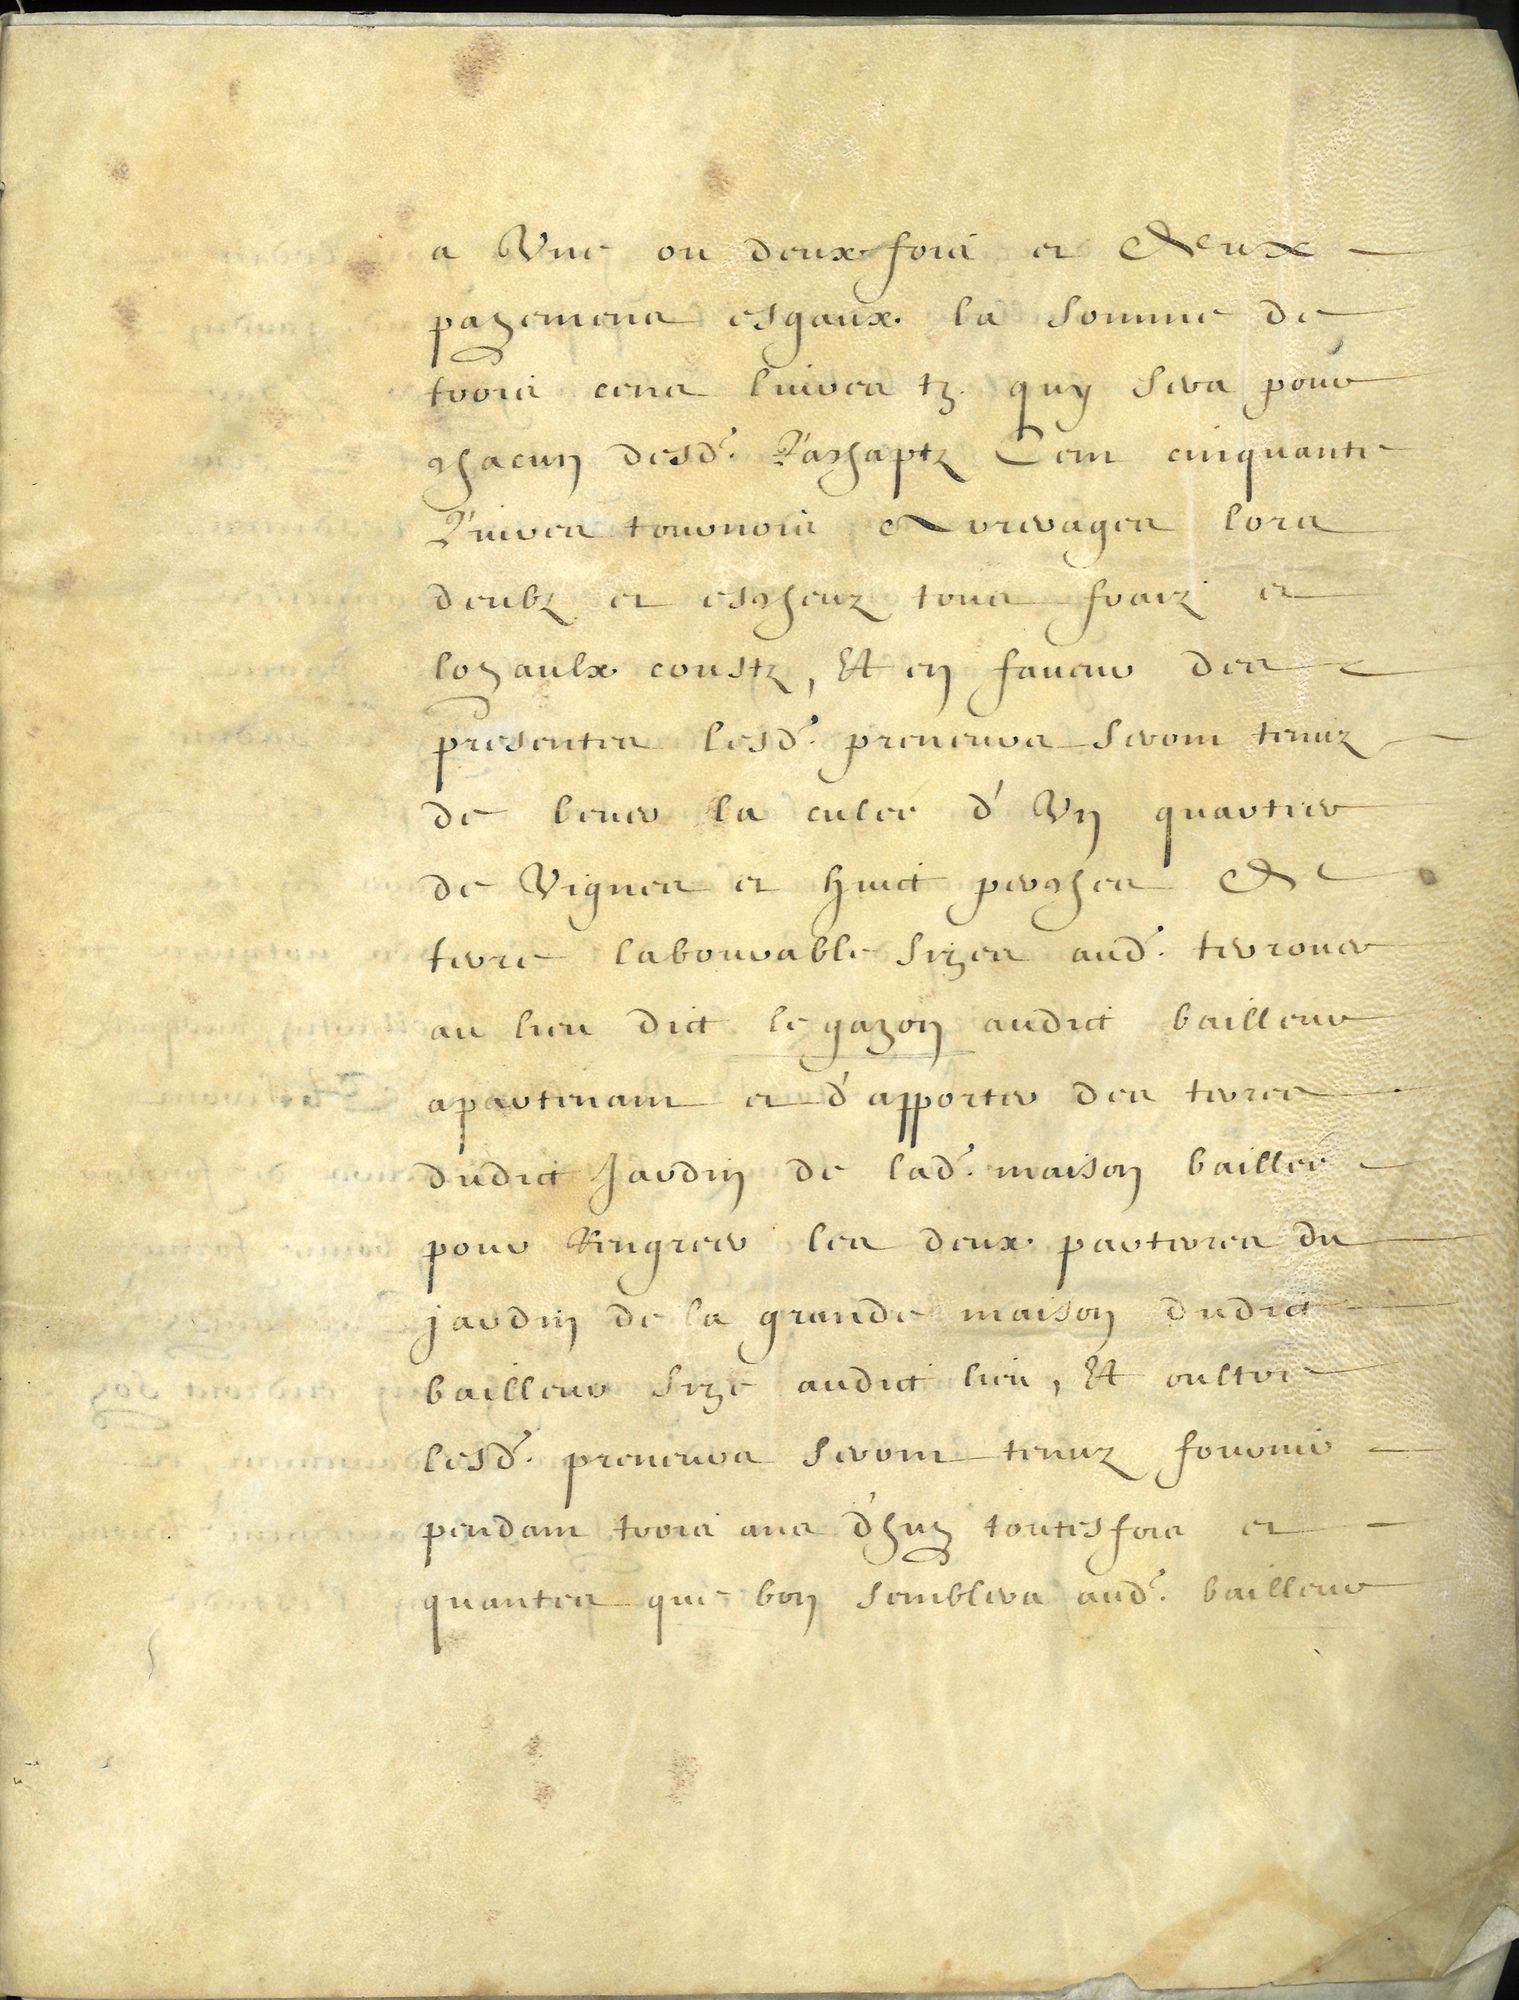 a Une ou deux fois et Deux
payemens esgaux la somme de
trois cens livres tz. quy sera pour
chacun desd. Rachaptz Cent cinquante
Livres tournois Arrerages lors
deubz et escheuz tous fraiz et
loyaulx coustz, Et en faveur des
presentes lesd. preneurs seront tenuz
de lever la culée d'Un quartier
de Vignes et huict perches De
terre labourable sizes aud. terrouer
au lieu dict le gazon audict bailleur
apartenant et d'apporter des terres
dudict Jardin de lad. maison baillée
pour Rengreer les deux parterres du
jardin de la grande maison dudict
bailleur size audict lieu, Et oultre
lesd. preneurs seront tenuz fournir
pendant trois ans d'huy toutesfois et
quantes que bon semblera aud. bailleur